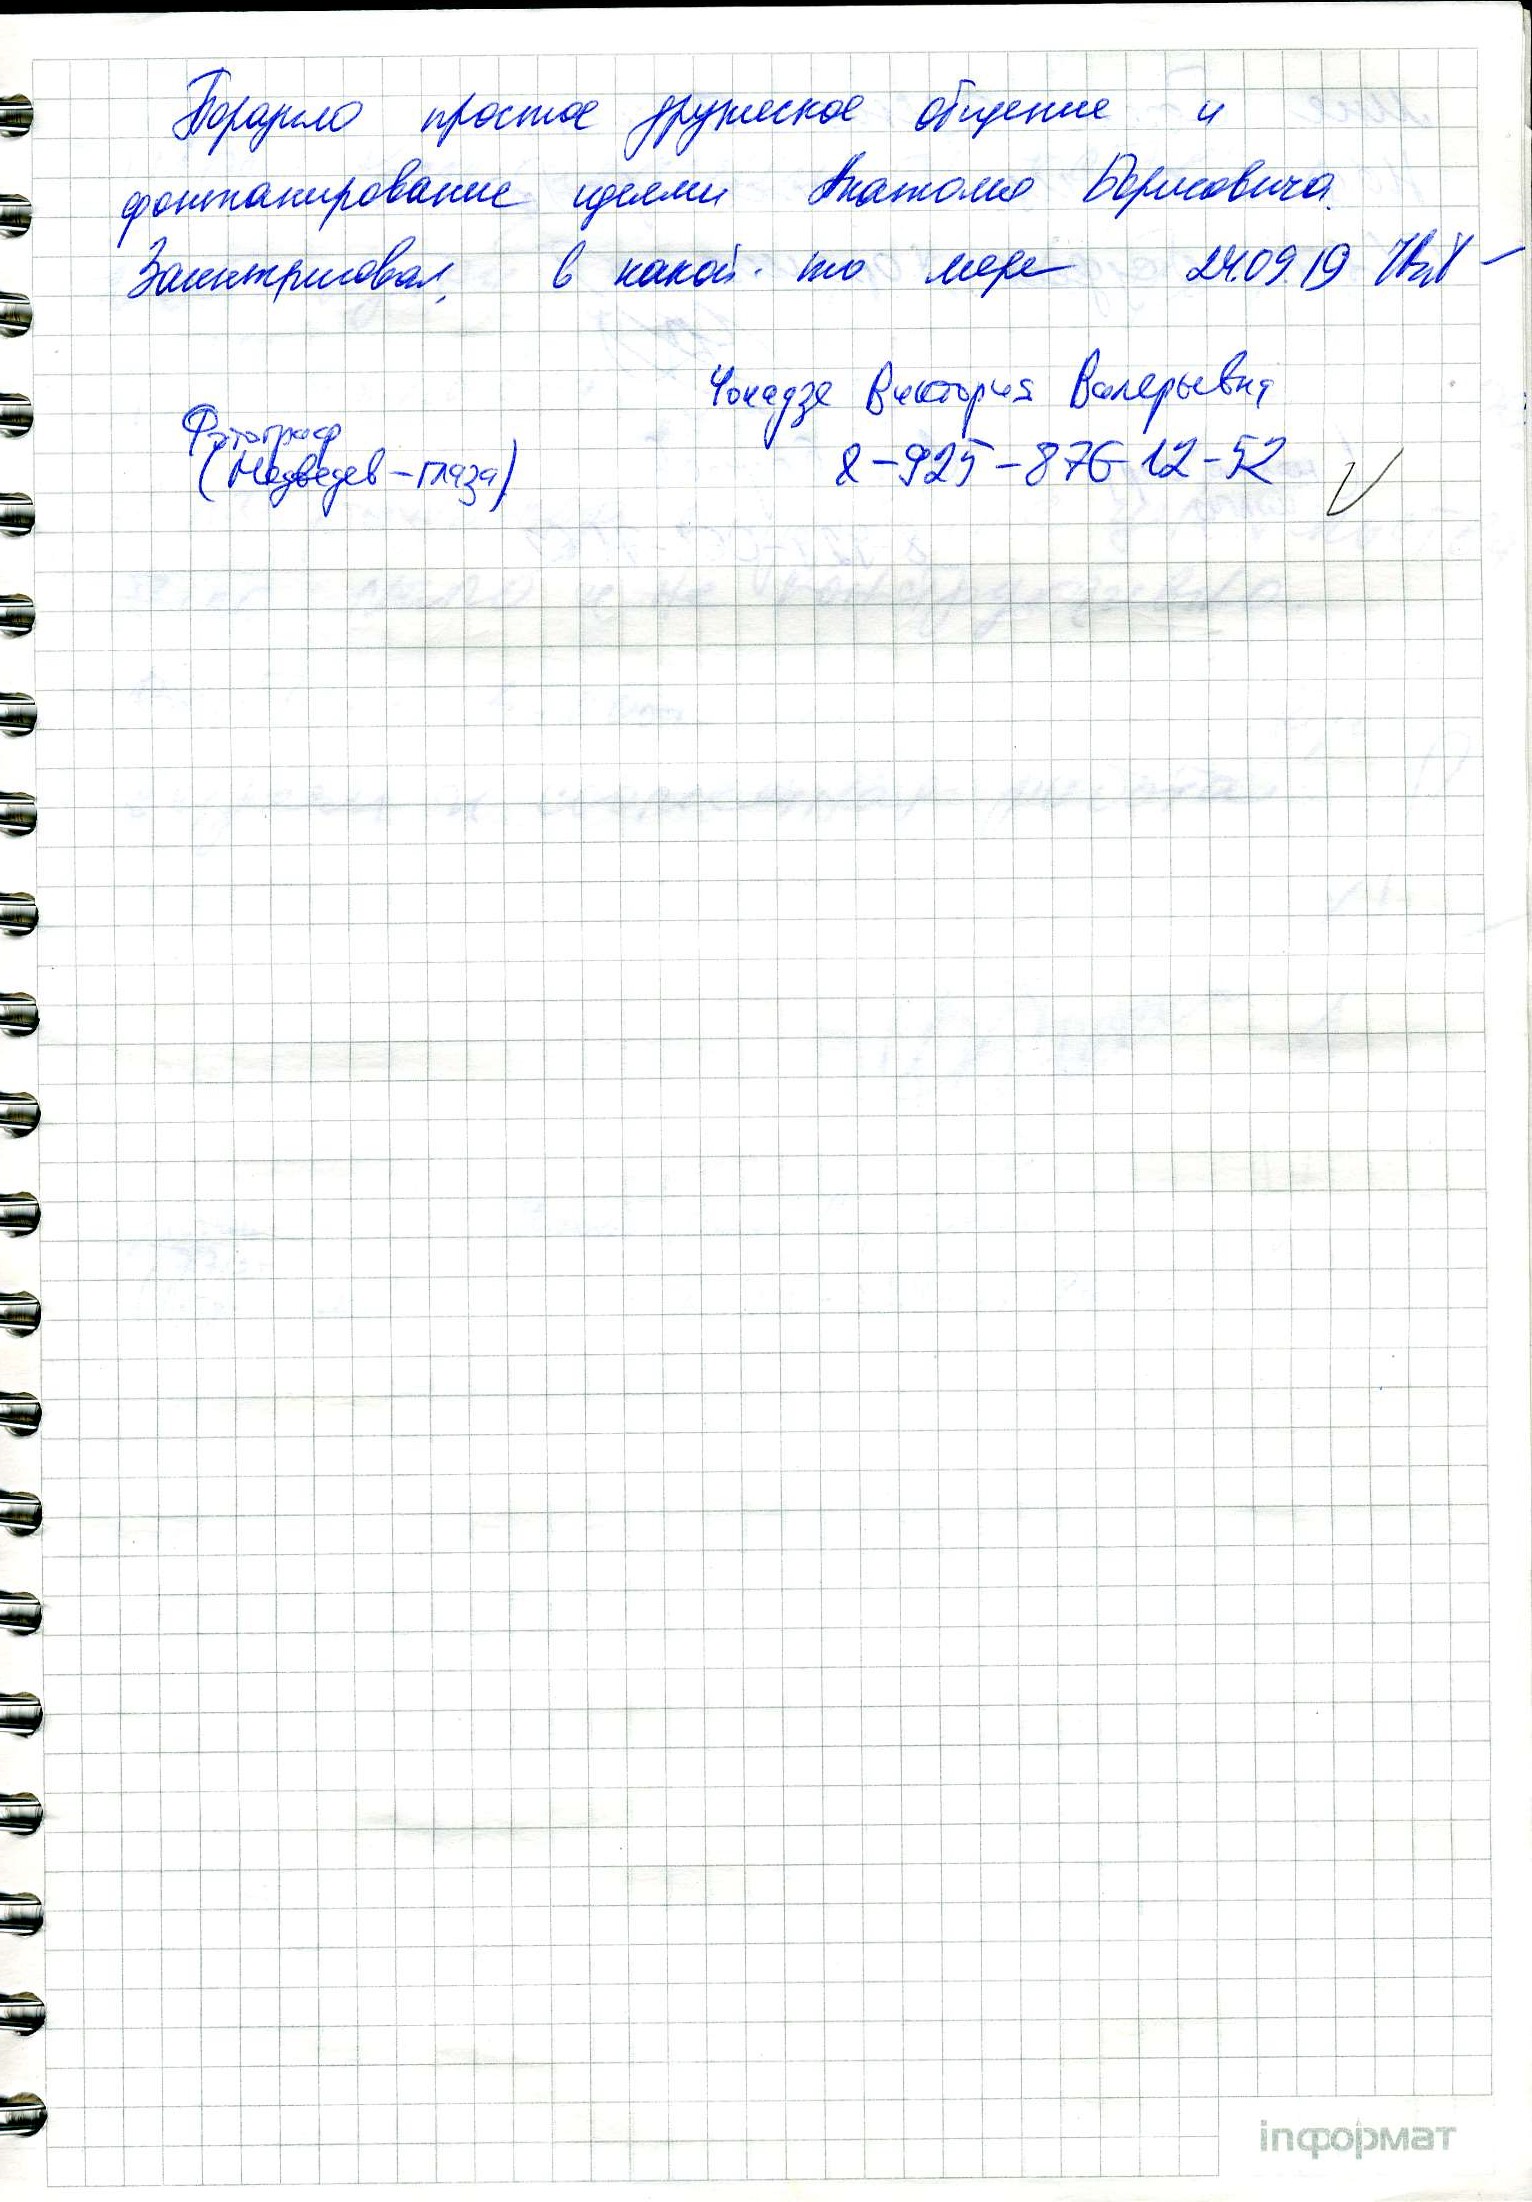 Поразило простое дружеское общение и
фонтанирование идеями Анатолия Борисовича.
Заинтриговал, в какой-то мере 24.09.19
Чокадзе Виктория Валерьевна
Фотограф
(Медведев-глаза)
8-925-876-12-52
inформат